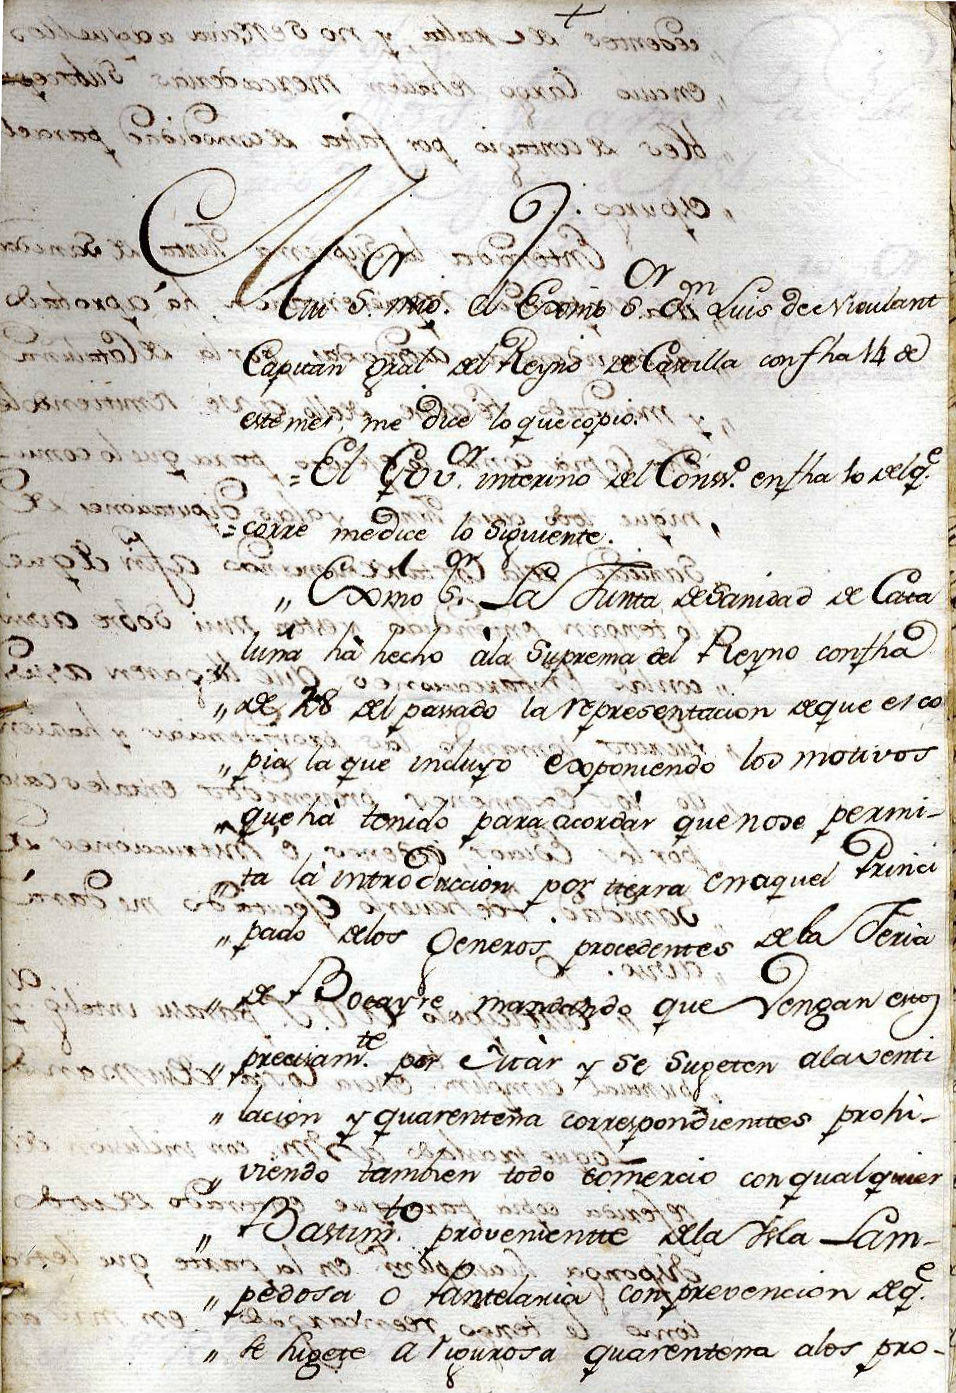 +
Mui S.or mio. El Exmo S.or Dn Luis de Nieulant
Capitan Gral del Reyno de Castilla con fha 14 de
este mes, me dice lo que copio.
= El Gov.or interino del Conss.o en fha 10 del q.e
= corre me dice lo siguiente.
" Exmo S.or La Junta de Sanidad de Cata
" luña hà hecho àla Suprema del Reyno con fha
" de 28 del passado la representacion de que es co
" pia la que incluyo exponiendo los motivos
" que há tenido para acordàr que no se permi-
" ta la introduccion por tierra en aquel Princi
" pado delos Generos procedentes de la Feria
" de Bocayre mandando que Vengan estos
" precisam.te por Màr y se sugeten ala venti
" lacion y quarenteña correspondienttes prohi-
" viendo tambien todo comercio con qualquier
" Bastim.to provenientte dela Isla Lam-
" pedosa O Pantelaria con prevencion de q.e
" se sugete a rigurosa quarentena alos pro-